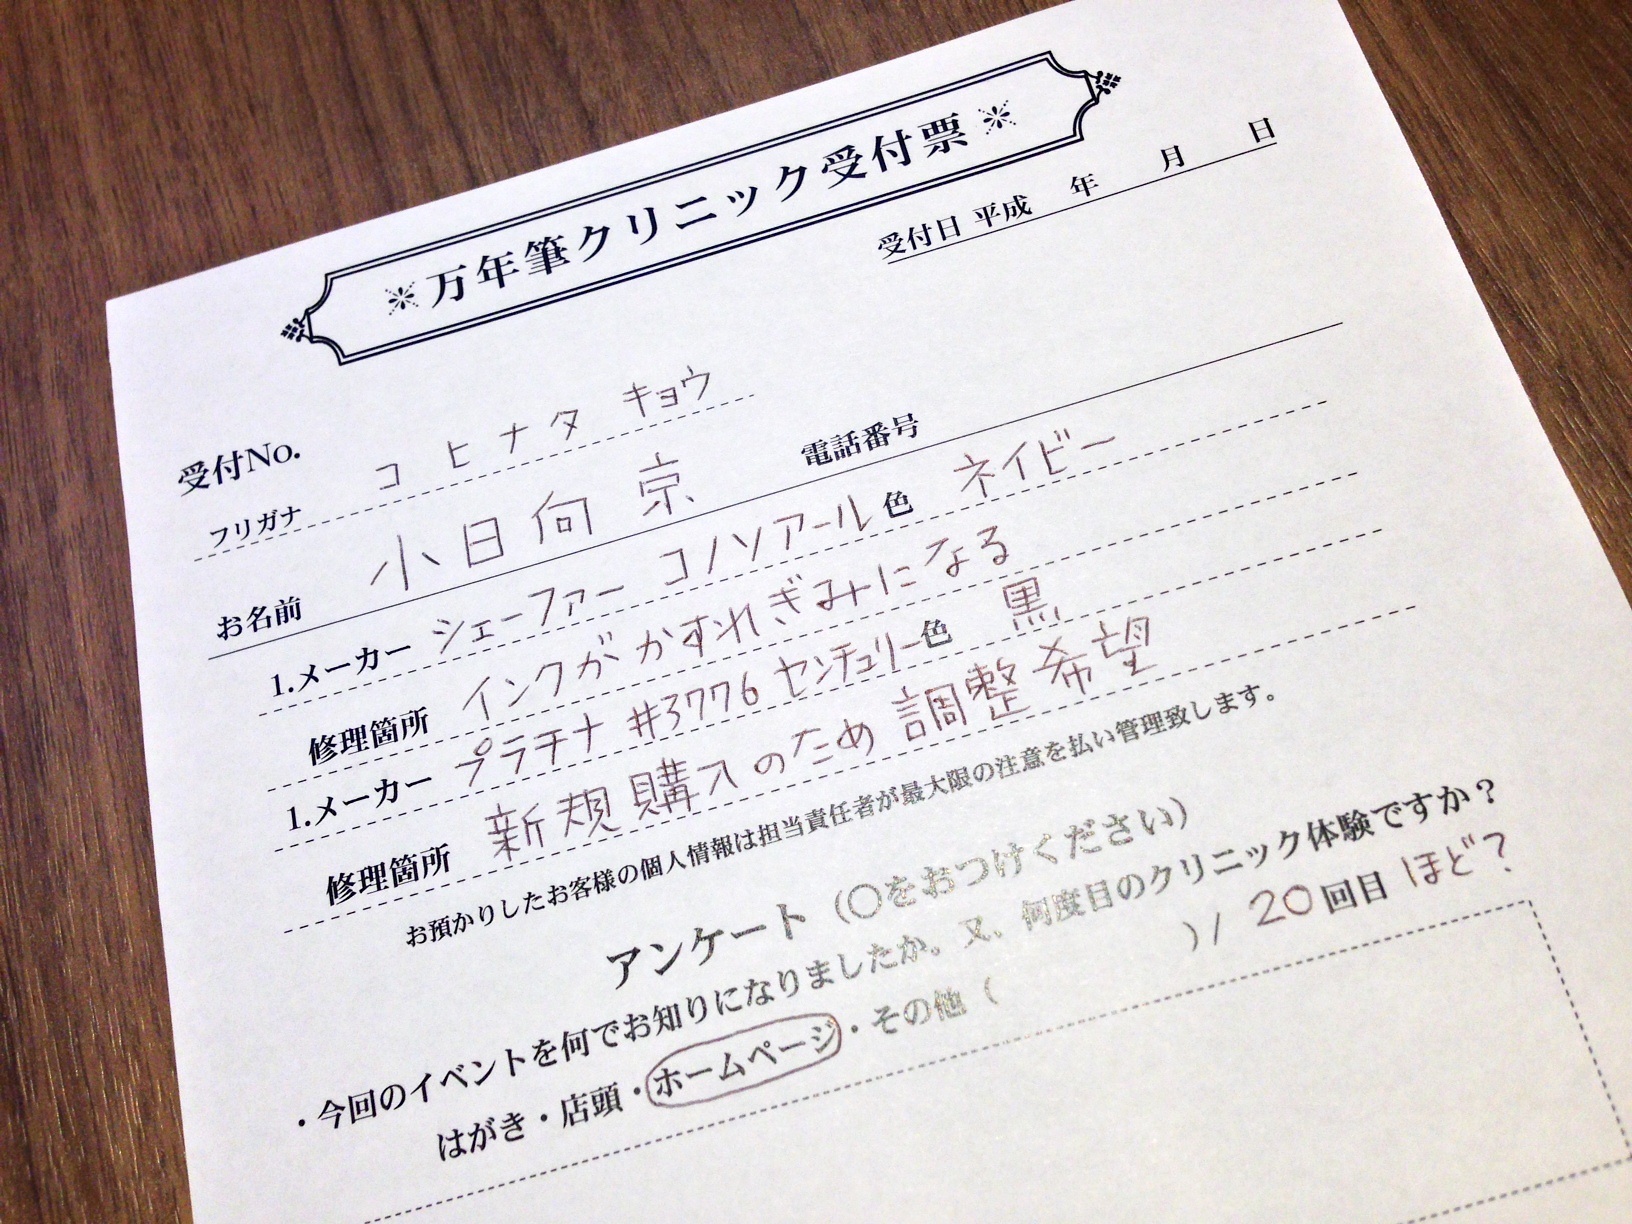 ※万年筆クリニック受付票※
受付日 平成 年 月 日
受付No.
フリガナ コヒナタ キョウ
お名前 小日向 京 電話番号
1.メーカー シェーファー コノソアール 色 ネイビー
修理箇所 インクがかすれぎみになる
1.メーカー プラチナ #3776 センチュリー 色 黒
修理箇所 新規購入のため調整希望
お預かりしたお客様の個人情報は担当責任者が最大限の注意を払い管理致します。
アンケート（○をおつけください）
・今回のイベントを何でお知りになりましたか。又、何度目のクリニック体験ですか？
はがき・店頭・ホームページ・その他（ ）/ 20回目 ほど？